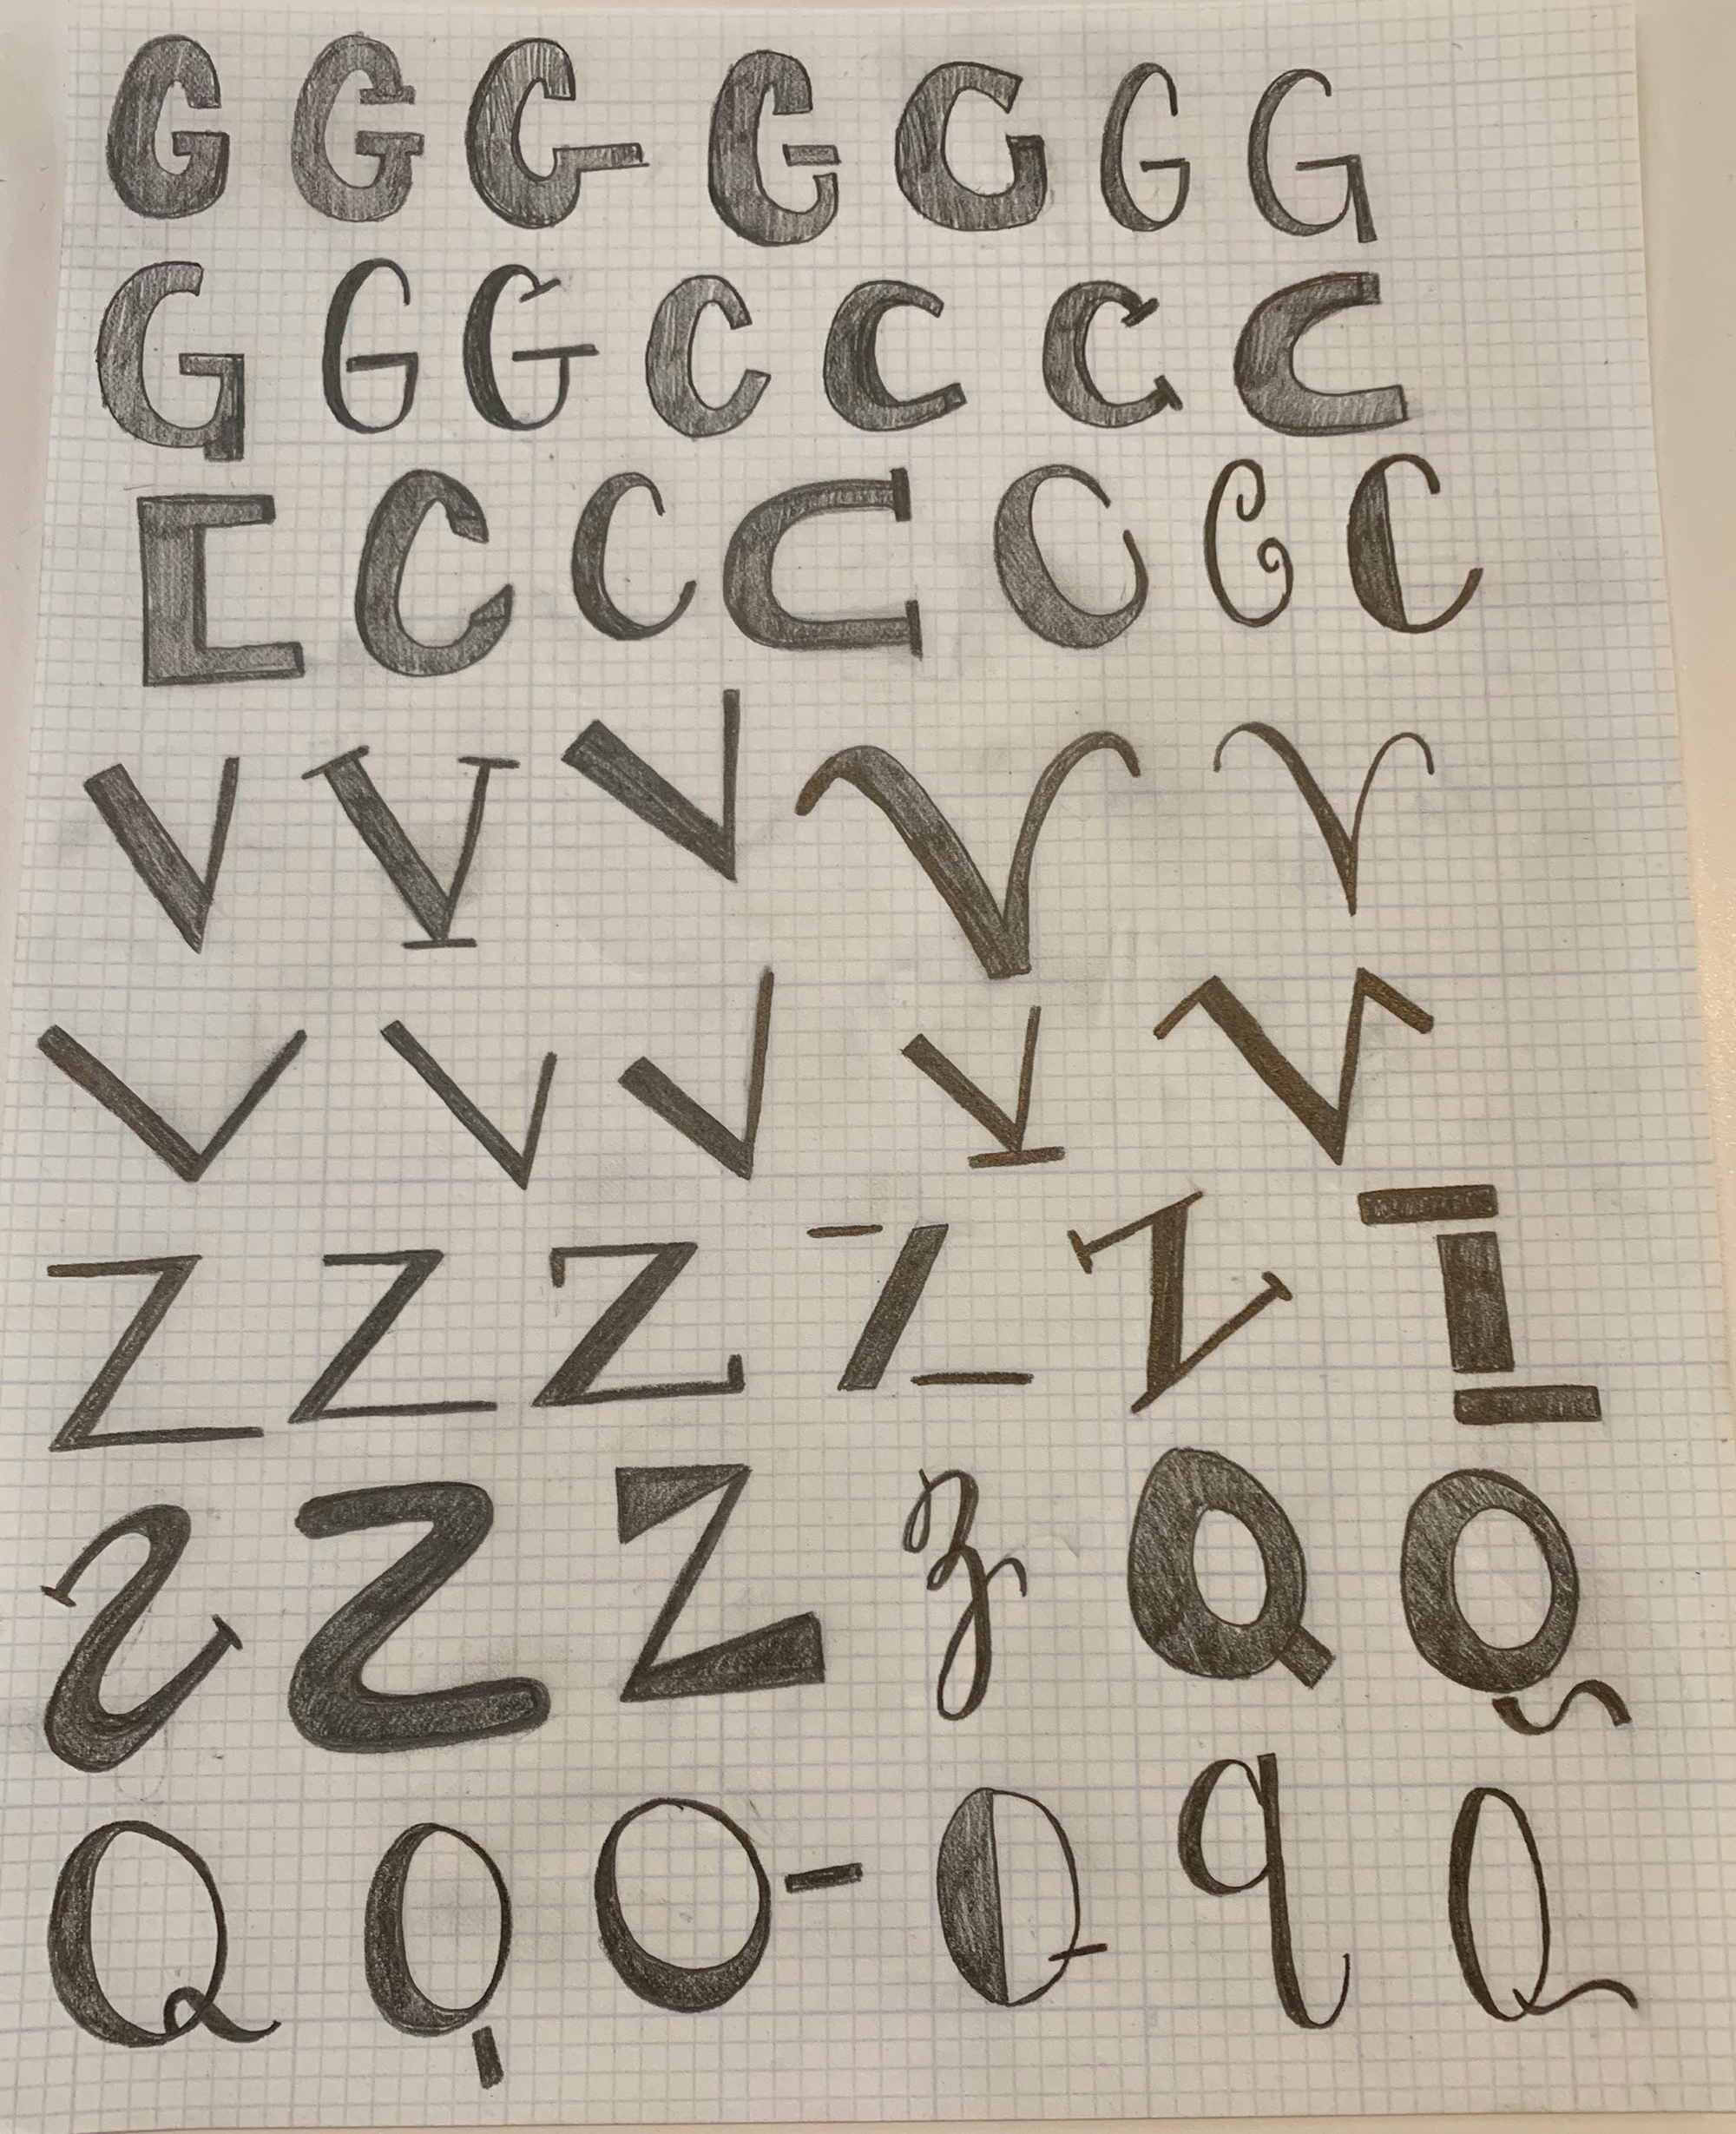 G G G G G G G
G G G C C C C
C C C C C C C
V V V V V
V V V V V
Z Z Z Z Z Z
Z Z Z z Q Q
Q Q Q Q q Q